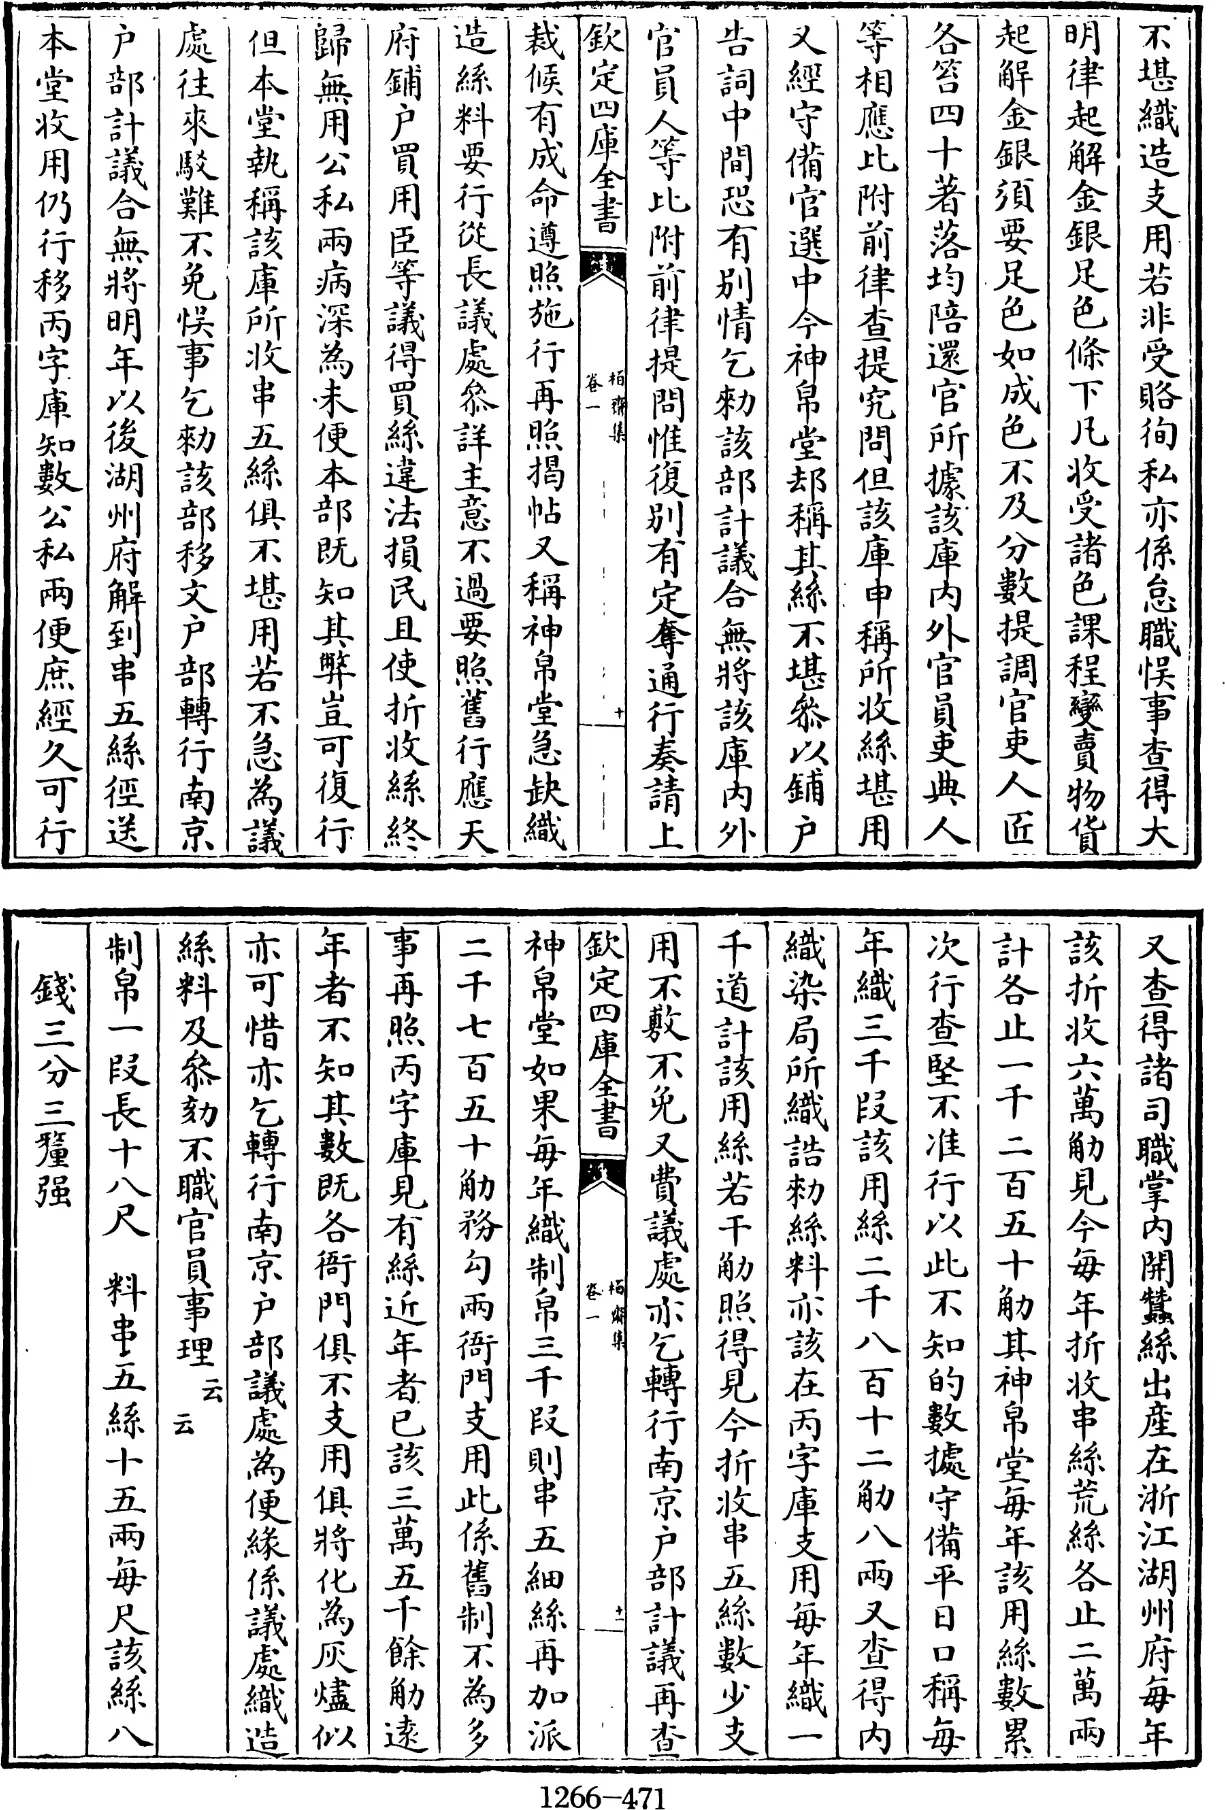 不堪織造支用若非受賂徇私亦係怠職悮事查得大
明律起解金銀足色條下凡收受諸色課程變賣物貨
起解金銀須要足色如成色不及分數提調官吏人匠
各笞四十著落均陪還官所據該庫内外官員吏典人
等相應比附前律查提究問但該庫申稱所收絲堪用
又經守備官選中今神帛堂却稱其絲不堪叅以鋪户
告詞中間恐有别情乞勑該部計議合無將該庫内外
官員人等比附前律提問惟復别有定奪通行奏請上
欽定四庫全書
柏齋集
卷一
十
裁候有成命遵照施行再照揭帖又稱神帛堂急缺織
造絲料要行從長議處叅詳主意不過要照舊行應天
府鋪户買用臣等議得買絲違法損民且使折收絲終
歸無用公私兩病深為未便本部既知其弊豈可復行
但本堂執稱該庫所收串五絲俱不堪用若不急為議
處往來駮難不免悮事乞勑該部移文户部轉行南京
户部計議合無將明年以後湖州府解到串五絲徑送
本堂收用仍行移丙字庫知數公私兩便庶經久可行
又查得諸司職掌内開蠶絲出産在浙江湖州府每年
該折收六萬觔見今每年折收串絲荒絲各止二萬兩
計各止一千二百五十觔其神帛堂每年該用絲數累
次行查堅不准行以此不知的數據守備平日口稱每
年織三千段該用絲二千八百十二觔八兩又查得内
織染局所織誥勑絲料亦該在丙字庫支用每年織一
千道計該用絲若干觔照得見今折收串五絲數少支
用不敷不免又費議處亦乞轉行南京户部計議再查
欽定四庫全書
柏齋集
卷一
十一
神帛堂如果每年織制帛三千段則串五細絲再加派
二千七百五十觔務勾兩衙門支用此係舊制不為多
事再照丙字庫見有絲近年者已該三萬五千餘觔遠
年者不知其數既各衙門俱不支用俱將化為灰燼似
亦可惜亦乞轉行南京户部議處為便緣係議處織造
絲料及叅劾不職官員事理云云
制帛一段長十八尺　料串五絲十五兩每尺該絲八
錢三分三釐强
1266-471